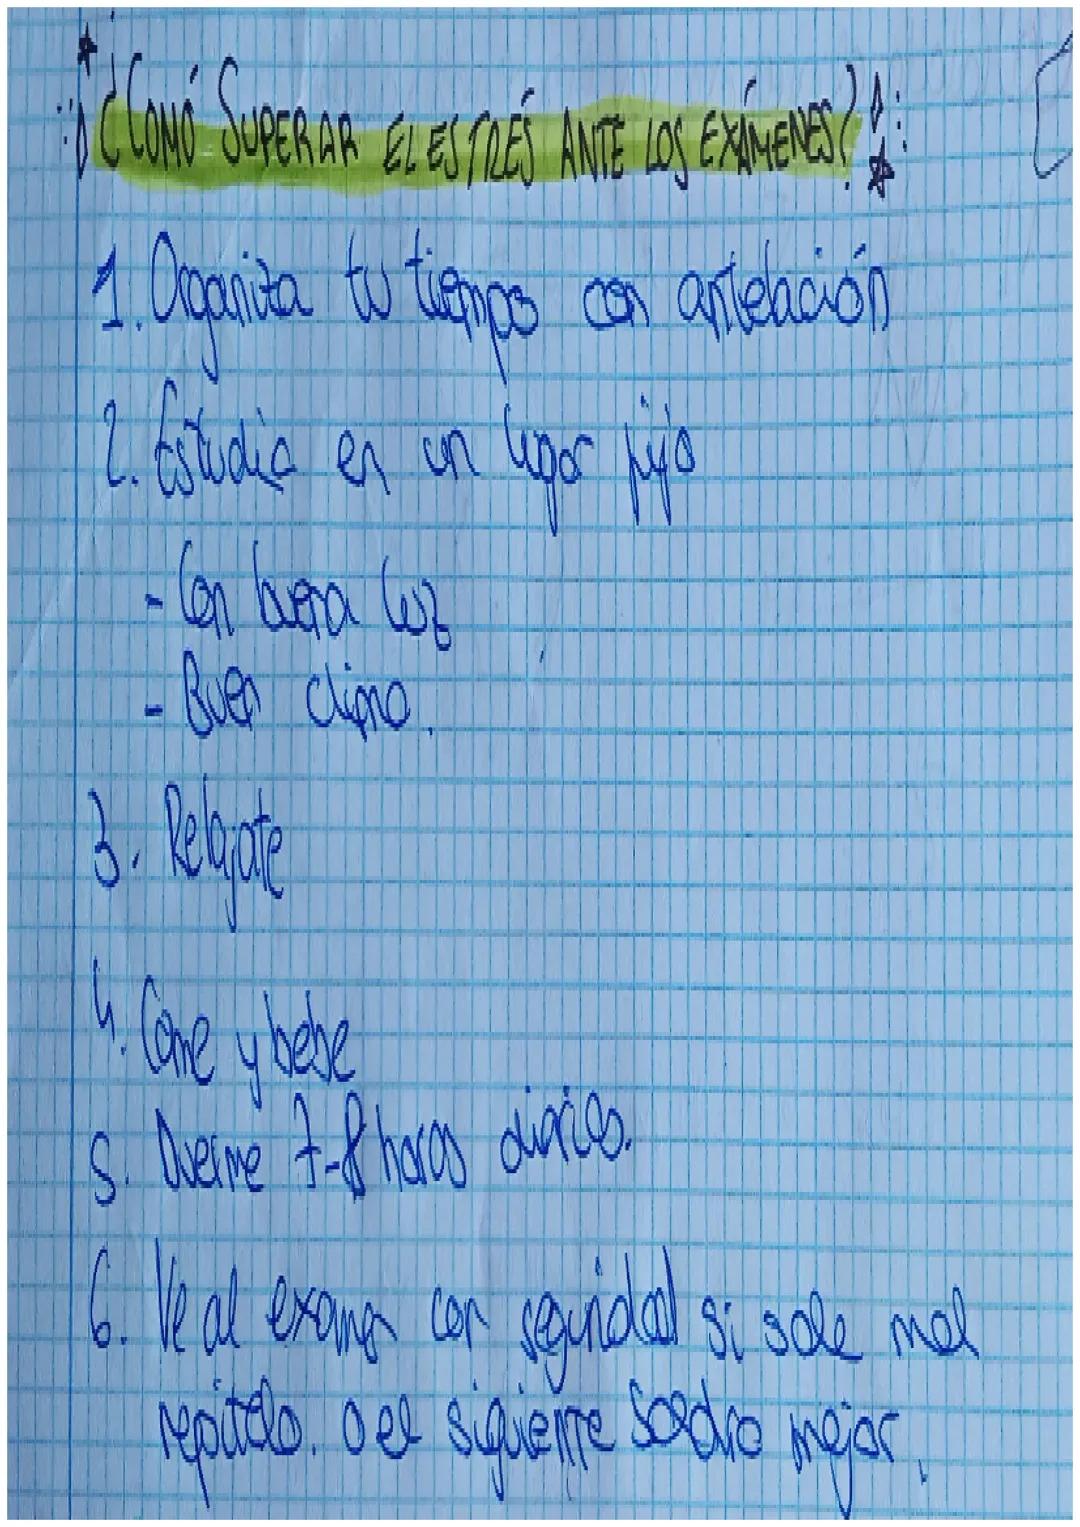 ¿COMÓ SUPERAR EL ESTRÉS ANTE LOS EXÁMENES?
1. Organiza tu tiempo con antelación
2. Estudia en un lugar fijo
- Con buena luz
- Buen clima.
3. Relajate
4. Come y bebe
5. Duerme 7-8 horas diarias.
6. Ve al examen con seguridad si sale mal
repitelo. o el siguiente saldrá mejor.